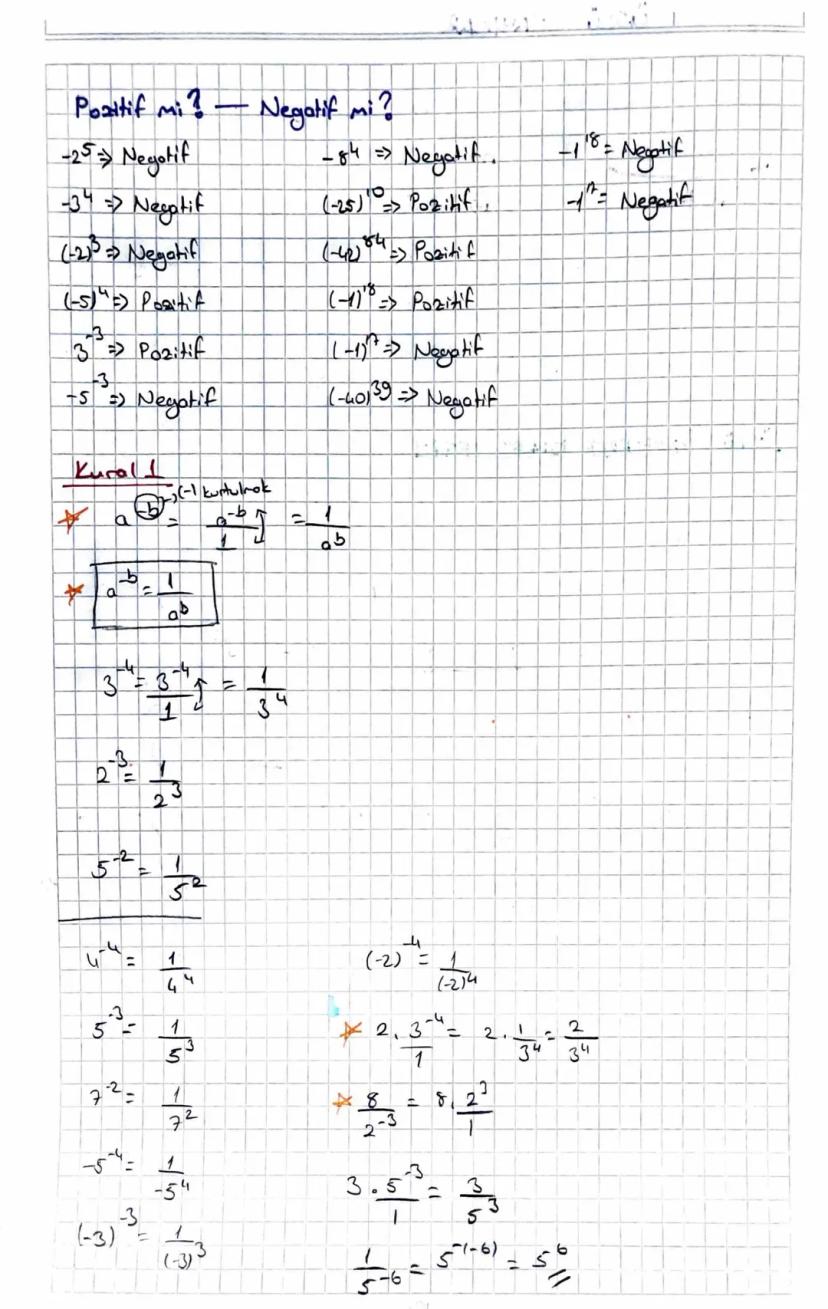 Pozitif mi? — Negatif mi?
-2⁵ => Negatif
-3⁴ => Negatif
(-2)³ => Negatif
(-5)⁴ => Pozitif
3⁻³ => Pozitif
-5⁻³ => Negatif
-8⁴ => Negatif.
(-25)¹⁰ => Pozitif.
(-42)⁸⁴ => Pozitif
(-1)¹⁸ => Pozitif
(-1)¹⁷ => Negatif
(-40)³⁹ => Negatif
-1¹⁸ = Negatif
-1¹⁷ = Negatif
Kural 1
a⁻ᵇ = a⁻ᵇ/1 = 1/aᵇ
(-) kurtulmak
a⁻ᵇ = 1/aᵇ
3⁻⁴ = 3⁻⁴/1 = 1/3⁴
2⁻³ = 1/2³
5⁻² = 1/5²
4⁻⁴ = 1/4⁴
5⁻³ = 1/5³
7⁻² = 1/7²
-5⁻⁴ = 1/-5⁴
(-3)⁻³ = 1/(-3)³
(-2)⁻⁴ = 1/(-2)⁴
2 . 3⁻⁴/1 = 2 . 1/3⁴ = 2/3⁴
8/2⁻³ = 8 . 2³/1
3 . 5⁻³/1 = 3/5³
1/5⁻⁶ = 5⁻⁽⁻⁶⁾ = 5⁶